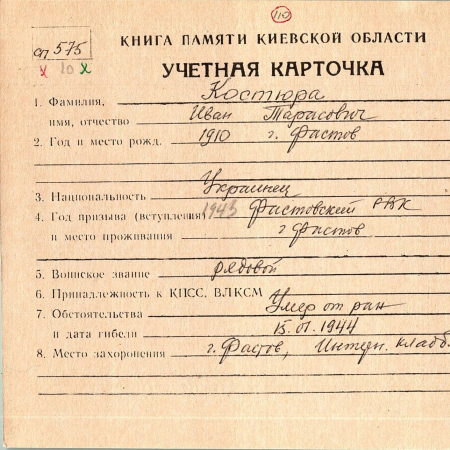 110
сп 575
х 10 х
КНИГА ПАМЯТИ КИЕВСКОЙ ОБЛАСТИ
УЧЕТНАЯ КАРТОЧКА
1. Фамилия, Костюра
имя, отчество Иван Тарасович
2. Год и место рожд. 1910 г. Фастов
3. Национальность Украинец
4. Год призыва (вступления) 1943 Фастовский РВК
и место проживания г Фастов
5. Воинское звание рядовой
6. Принадлежность к КПСС, ВЛКСМ
7. Обстоятельства Умер от ран
и дата гибели 15.01.1944
8. Место захоронения г. Фастов, Интерн. кладб.